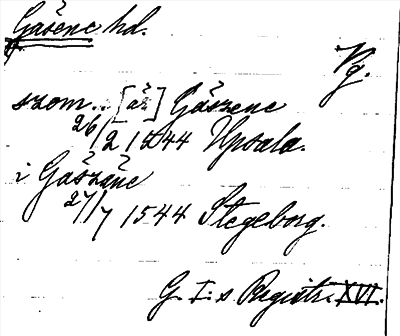 Gåsene hd.
Vg.
szom.. [åz] Gåszene
26/2 1544 Upsala.
i Gåszene
27/7 1544 Stegeborg.
G. I:s Registr. XVI.